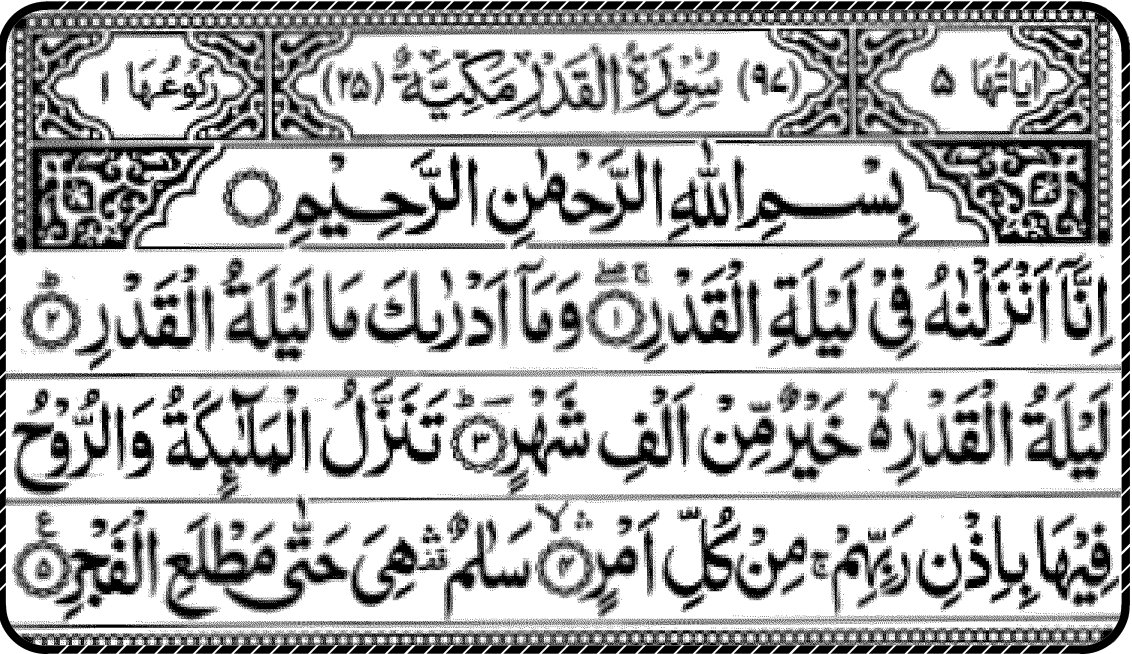 اٰيَاتُهَا ٥ (٩٧) سُوْرَةُ الْقَدْرِ مَكِّيَّةٌ (٢٥) رُكُوْعُهَا ١
بِسْمِ اللّٰهِ الرَّحْمٰنِ الرَّحِيْمِ
اِنَّاۤ اَنْزَلْنٰهُ فِیْ لَيْلَةِ الْقَدْرِ ۚۖ ١ وَمَاۤ اَدْرٰىكَ مَا لَيْلَةُ الْقَدْرِ ؕ ٢
لَيْلَةُ الْقَدْرِ ۙ۬ خَيْرٌ مِّنْ اَلْفِ شَهْرٍ ؕ ٣ تَنَزَّلُ الْمَلٰٓئِكَةُ وَالرُّوْحُ
فِيْهَا بِاِذْنِ رَبِّهِمْ ۚ مِنْ كُلِّ اَمْرٍ ۙۛ ٤ سَلٰمٌ ۛ قف هِیَ حَتّٰی مَطْلَعِ الْفَجْرِ ٥ ع